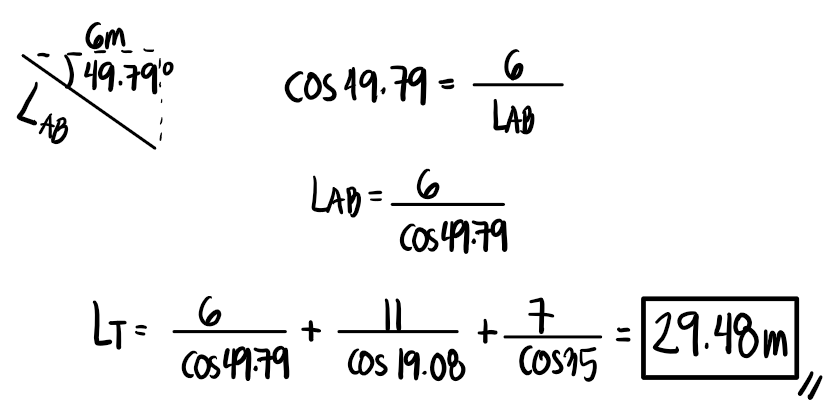 6m
49.79°
L_AB
cos 49.79 = 6 / L_AB
L_AB = 6 / cos49.79
L_T = 6 / cos49.79 + 11 / cos 19.08 + 7 / cos35 = 29.48m //